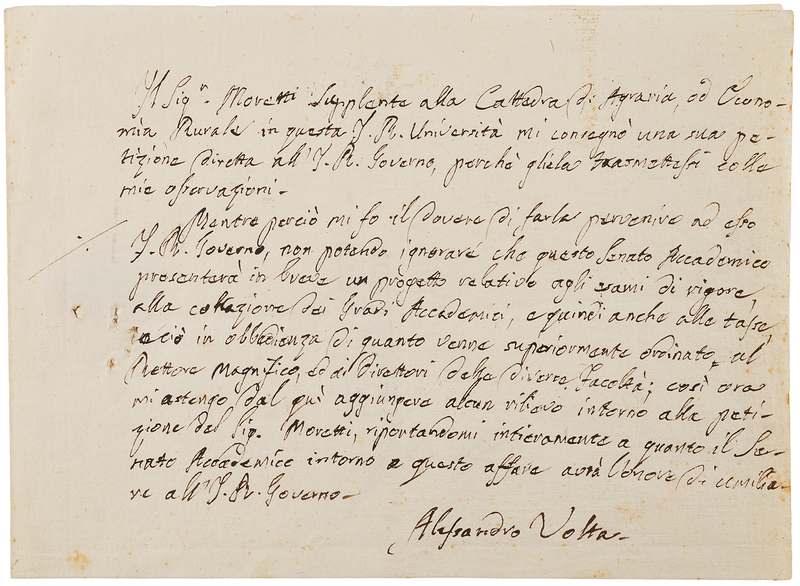 Il Sigr. Moretti Supplente alla Cattedra di Agraria, ed Econo-
mia Rurale in questa I. R. Università mi consegnò una sua pe-
tizione diretta all'I. R. Governo, perchè gliela trasmettessi colle
mie osservazioni.
Mentre perciò mi fo il dovere di farla pervenire ad esso
I. R. Governo, non potendo ignorare che questo Senato Accademico
presenterà in breve un progetto relativo agli esami di rigore,
alla collazione dei Gradi Accademici, e quindi anche alle tasse,
e ciò in obbedienza di quanto venne superiormente ordinato al
Rettore Magnifico, ed ai Direttori delle diverse Facoltà; così ora
mi astengo dal quì aggiungere alcun rilievo intorno alla peti-
zione del Sig. Moretti, riportandomi intieramente a quanto il Se-
nato Accademico intorno a questo affare avrà l'onore di umilia-
re all'I. R. Governo.
Alessandro Volta.